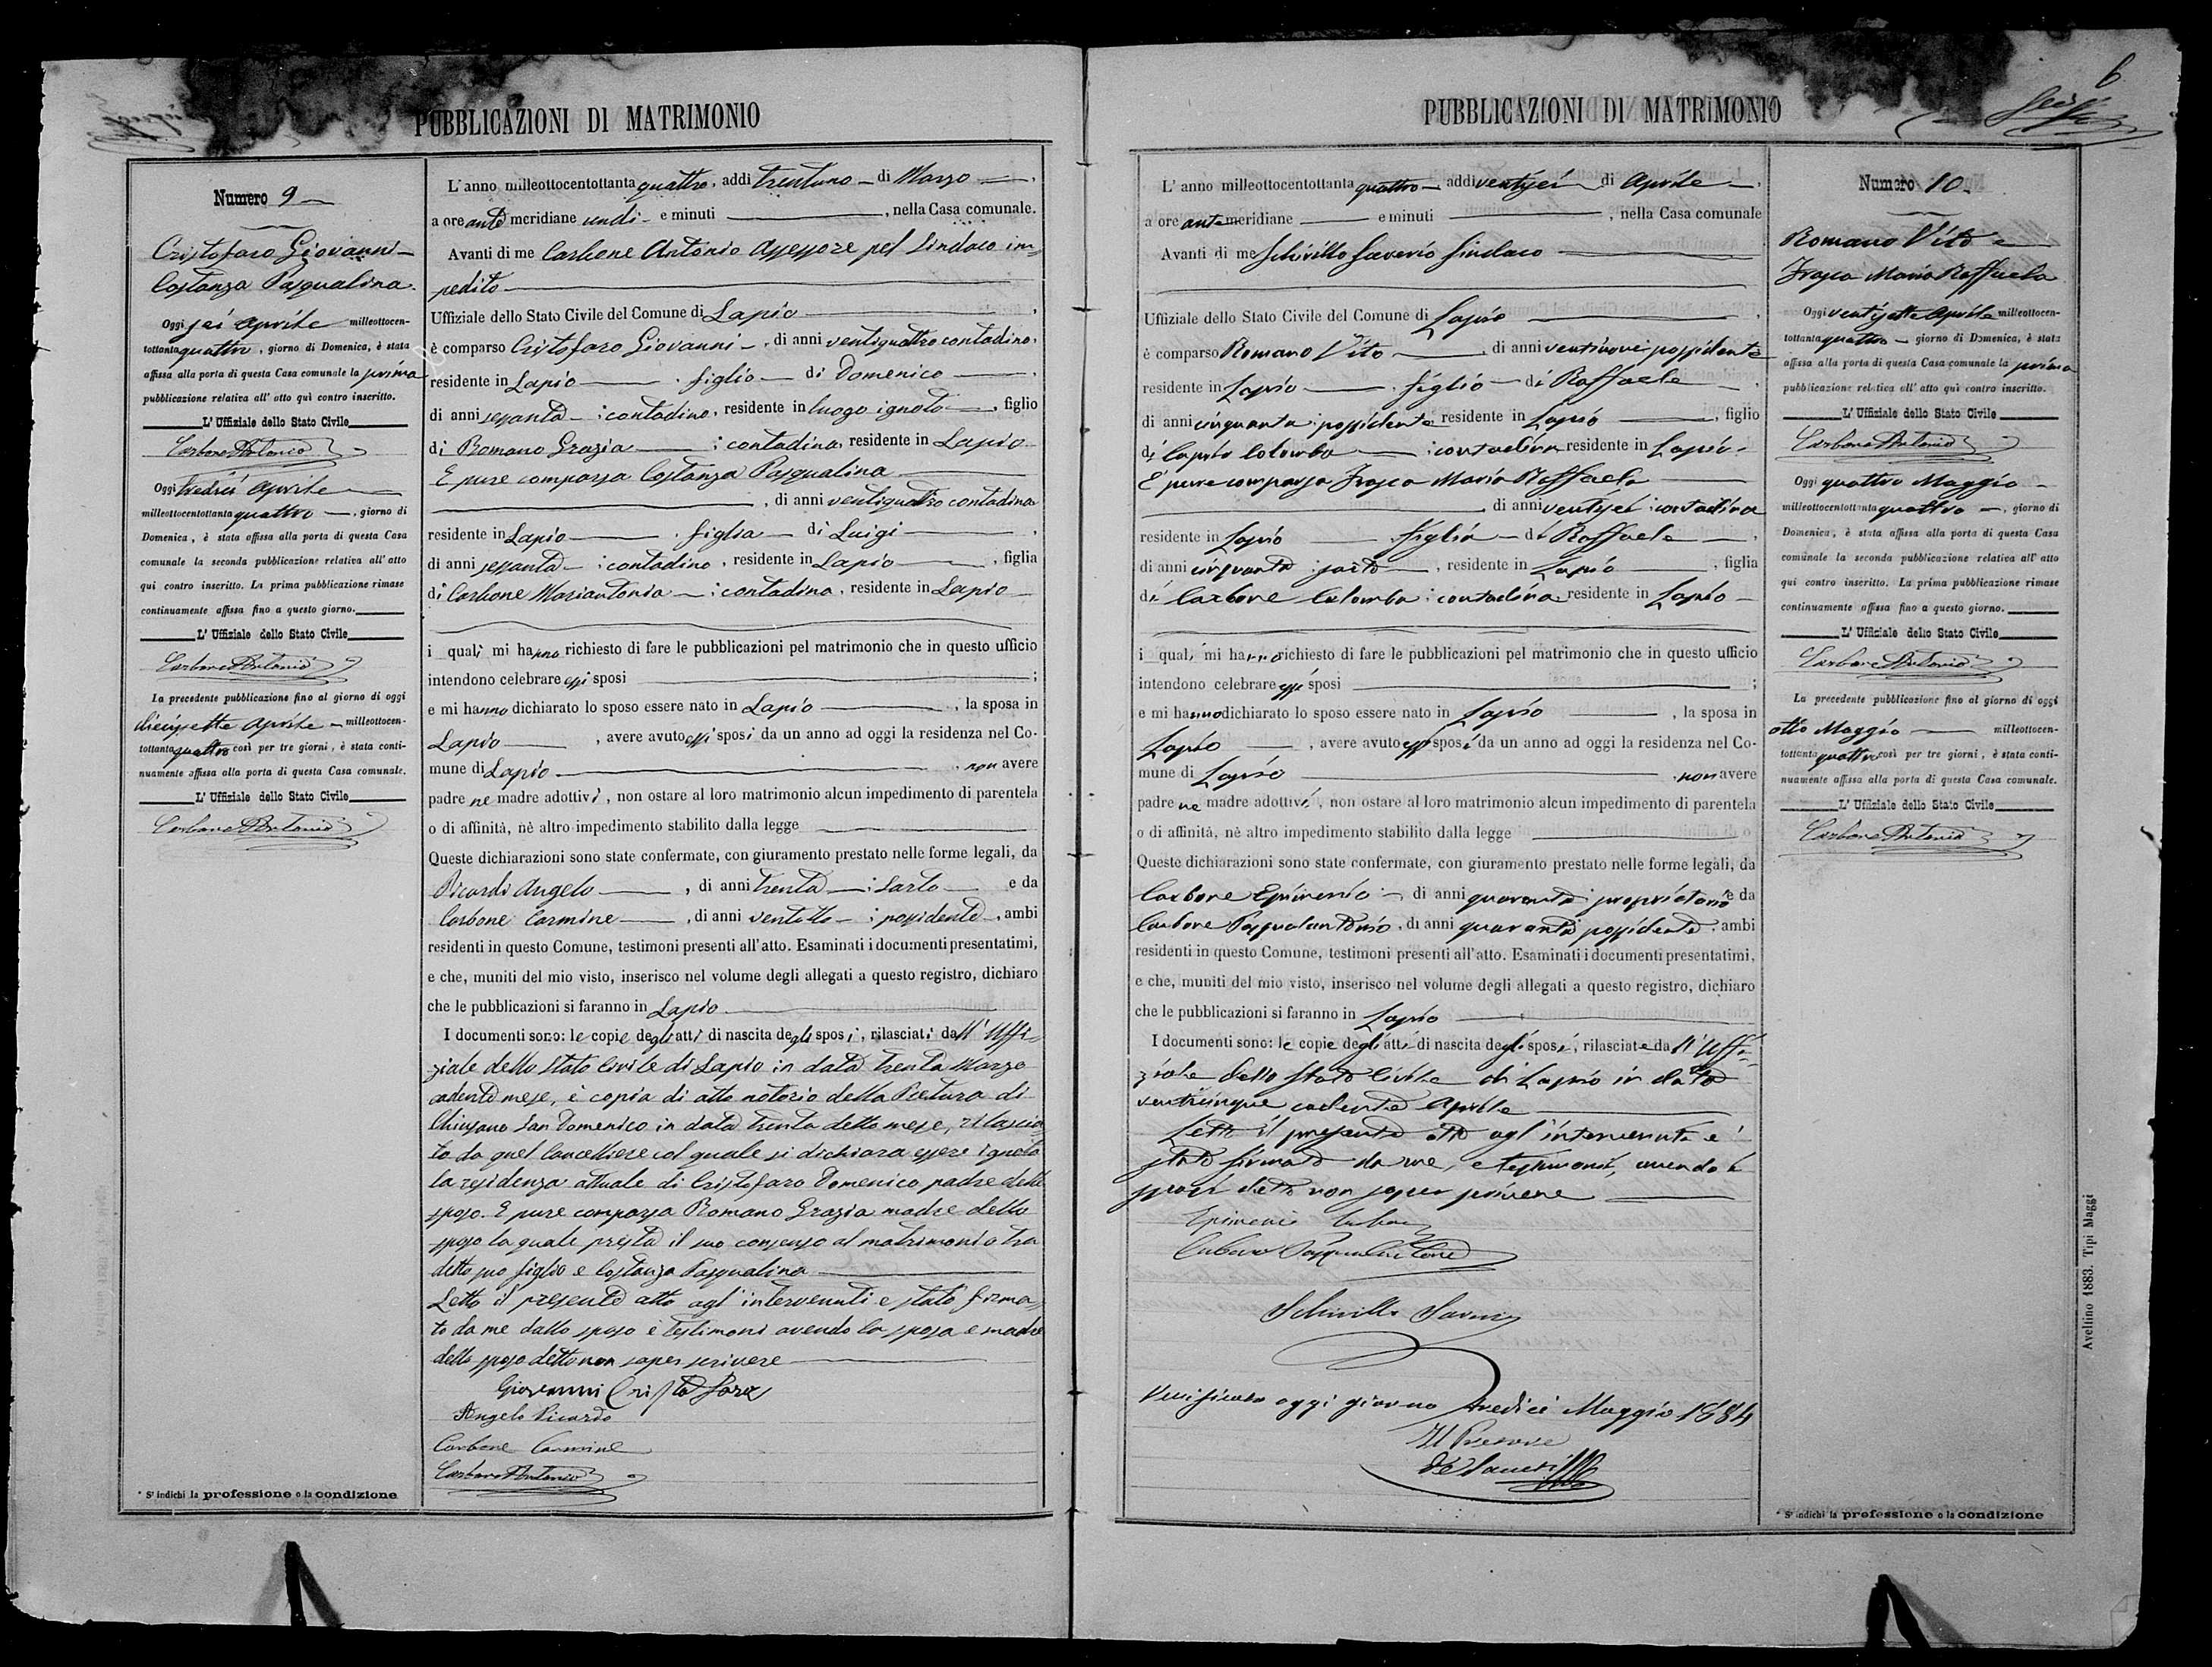 PUBBLICAZIONI DI MATRIMONIO
Numero 9
Cristofaro Giovanni
Costanza Pasqualina
Oggi sei Aprile milleottocen-
tottanta quattro, giorno di Domenica, è stata
affissa alla porta di questa Casa comunale la prima
pubblicazione relativa all' atto quì contro inscritto.
L' Uffiziale dello Stato Civile
Carbone Antonio
Oggi tredici Aprile
milleottocentottanta quattro, giorno di
Domenica, è stata affissa alla porta di questa Casa
comunale la seconda pubblicazione relativa all' atto
qui contro inscritto. La prima pubblicazione rimase
continuamente affissa fino a questo giorno.
L' Uffiziale dello Stato Civile
Carbone Antonio
La precedente pubblicazione fino al giorno di oggi
diciassette Aprile milleottocen-
tottanta quattro così per tre giorni, è stata conti-
nuamente affissa alla porta di questa Casa comunale.
L' Uffiziale dello Stato Civile
Carbone Antonio
* S' indichi la professione o la condizione
L' anno milleottocentottanta quattro, addi trentuno di Marzo,
a ore ante meridiane undi- e minuti , nella Casa comunale.
Avanti di me Carbone Antonio Assessore pel Sindaco im-
pedito
Uffiziale dello Stato Civile del Comune di Lapio,
è comparso Cristofaro Giovanni, di anni ventiquattro contadino,
residente in Lapio, figlio di Domenico,
di anni sessanta, contadino, residente in luogo ignoto, figlio
di Romano Grazia, contadina, residente in Lapio
E pure comparsa Costanza Pasqualina
, di anni ventiquattro contadina
residente in Lapio, figlia di Luigi,
di anni sessanta, contadino, residente in Lapio, figlia
di Carbone Mariantonia, contadina, residente in Lapio
i quali mi hanno richiesto di fare le pubblicazioni pel matrimonio che in questo ufficio
intendono celebrare essi sposi ;
e mi hanno dichiarato lo sposo essere nato in Lapio, la sposa in
Lapio, avere avuto essi sposi da un anno ad oggi la residenza nel Co-
mune di Lapio, non avere
padre ne madre adottivi, non ostare al loro matrimonio alcun impedimento di parentela
o di affinità, nè altro impedimento stabilito dalla legge
Queste dichiarazioni sono state confermate, con giuramento prestato nelle forme legali, da
Ricardi Angelo, di anni trenta, Sarto e da
Carbone Carmine, di anni ventotto, possidente, ambi
residenti in questo Comune, testimoni presenti all' atto. Esaminati i documenti presentatimi,
e che, muniti del mio visto, inserisco nel volume degli allegati a questo registro, dichiaro
che le pubblicazioni si faranno in Lapio
I documenti sono: le copie degli atti di nascita degli sposi, rilasciati dall' Uffi-
ziale dello Stato Civile di Lapio in data trenta Marzo
cadente mese, è copia di atto notorio della Pretura di
Chiusano San Domenico in data trenta detto mese, rilascia-
to da quel Cancelliere col quale si dichiara essere ignota
la residenza attuale di Cristofaro Domenico padre dello
sposo. E pure comparsa Romano Grazia madre dello
sposo la quale presta il suo consenso al matrimonio tra
detto suo figlio e Costanza Pasqualina
Letto il presente atto agl' intervenuti e stato firma-
to da me dallo sposo e testimoni avendo la sposa e madre
dello sposo detto non saper scrivere
Giovanni Cristofaro
Angelo Ricardo
Carbone Carmine
Carbone Antonio
PUBBLICAZIONI DI MATRIMONIO
6
L' anno milleottocentottanta quattro addi ventisei di Aprile,
a ore ante meridiane e minuti , nella Casa comunale
Avanti di me Schirillo Saverio Sindaco
Uffiziale dello Stato Civile del Comune di Lapio,
è comparso Romano Vito, di anni ventinove possidente
residente in Lapio, figlio di Raffaele,
di anni cinquanta, possidente residente in Lapio, figlio
di Caputo Colomba, contadina residente in Lapio
E pure comparsa Frasca Maria Raffaela
, di anni ventisei contadina
residente in Lapio, figlia di Raffaele,
di anni cinquanta, sarto, residente in Lapio, figlia
di Carbone Colomba, contadina residente in Lapio
i quali mi hanno richiesto di fare le pubblicazioni pel matrimonio che in questo ufficio
intendono celebrare essi sposi ;
e mi hanno dichiarato lo sposo essere nato in Lapio, la sposa in
Lapio, avere avuto essi sposi da un anno ad oggi la residenza nel Co-
mune di Lapio, non avere
padre ne madre adottivi, non ostare al loro matrimonio alcun impedimento di parentela
o di affinità, nè altro impedimento stabilito dalla legge
Queste dichiarazioni sono state confermate, con giuramento prestato nelle forme legali, da
Carbone Epimenio, di anni quaranta proprietario e da
Carbone Pasqualantonio, di anni quaranta possidente, ambi
residenti in questo Comune, testimoni presenti all' atto. Esaminati i documenti presentatimi,
e che, muniti del mio visto, inserisco nel volume degli allegati a questo registro, dichiaro
che le pubblicazioni si faranno in Lapio
I documenti sono: le copie degli atti di nascita degli sposi, rilasciate dall' Uffi-
ziale dello Stato Civile di Lapio in data
venticinque cadente Aprile
Letto il presente atto agl' intervenuti e'
stato firmato da me, e testimoni, avendo i
sposi detto non saper scrivere
Epimenio Carbone
Carbone Pasqualantonio
Schirillo Saverio
Verificato oggi giorno tredici Maggio 1884
Il Pretore
Numero 10
Romano Vito e
Frasca Maria Raffaela
Oggi ventisette Aprile milleottocen-
tottanta quattro giorno di Domenica, è stata
affissa alla porta di questa Casa comunale la prima
pubblicazione relativa all' atto quì contro inscritto.
L' Uffiziale dello Stato Civile
Carbone Antonio
Oggi quattro Maggio
milleottocentottanta quattro, giorno di
Domenica, è stata affissa alla porta di questa Casa
comunale la seconda pubblicazione relativa all' atto
qui contro inscritto. La prima pubblicazione rimase
continuamente affissa fino a questo giorno.
L' Uffiziale dello Stato Civile
Carbone Antonio
La precedente pubblicazione fino al giorno di oggi
otto Maggio milleottocen-
tottanta quattro così per tre giorni, è stata conti-
nuamente affissa alla porta di questa Casa comunale.
L' Uffiziale dello Stato Civile
Carbone Antonio
* S' indichi la professione o la condizione
Avellino 1883. Tipi Maggi